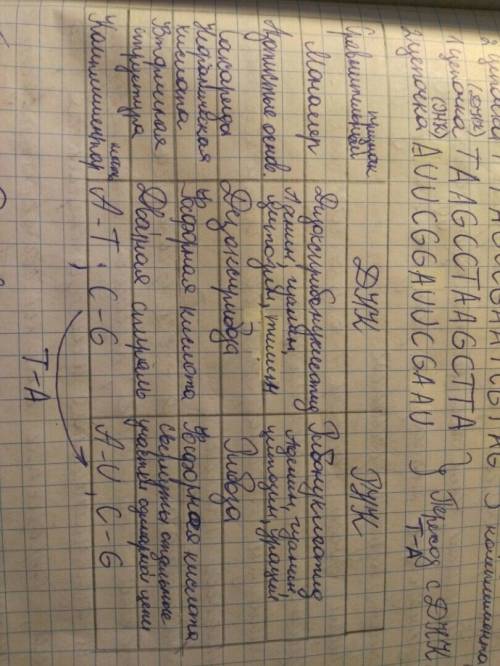 2 цепочка
(ДНК)
1 цепочка TAAGCCTAAGCTTA } Переход с ДНК
(РНК)
2 цепочка AUUCGGAUUCGAAU T-A
Сравнительный признак ДНК РНК
Мономер Дизоксирибонуклеотид Рибонуклеотид
Азотистые основ. Аденин, гуанин, цитозин, тимин Аденин, гуанин, цитозин, урацил
Сахарида Дезоксирибоза Рибоза
Неорганическая кислота Фосфорная кислота Фосфорная кислота
Вторичная структура Двойная спираль участки одинарной цепи
A-T, C-G A-U, C-G
T-A